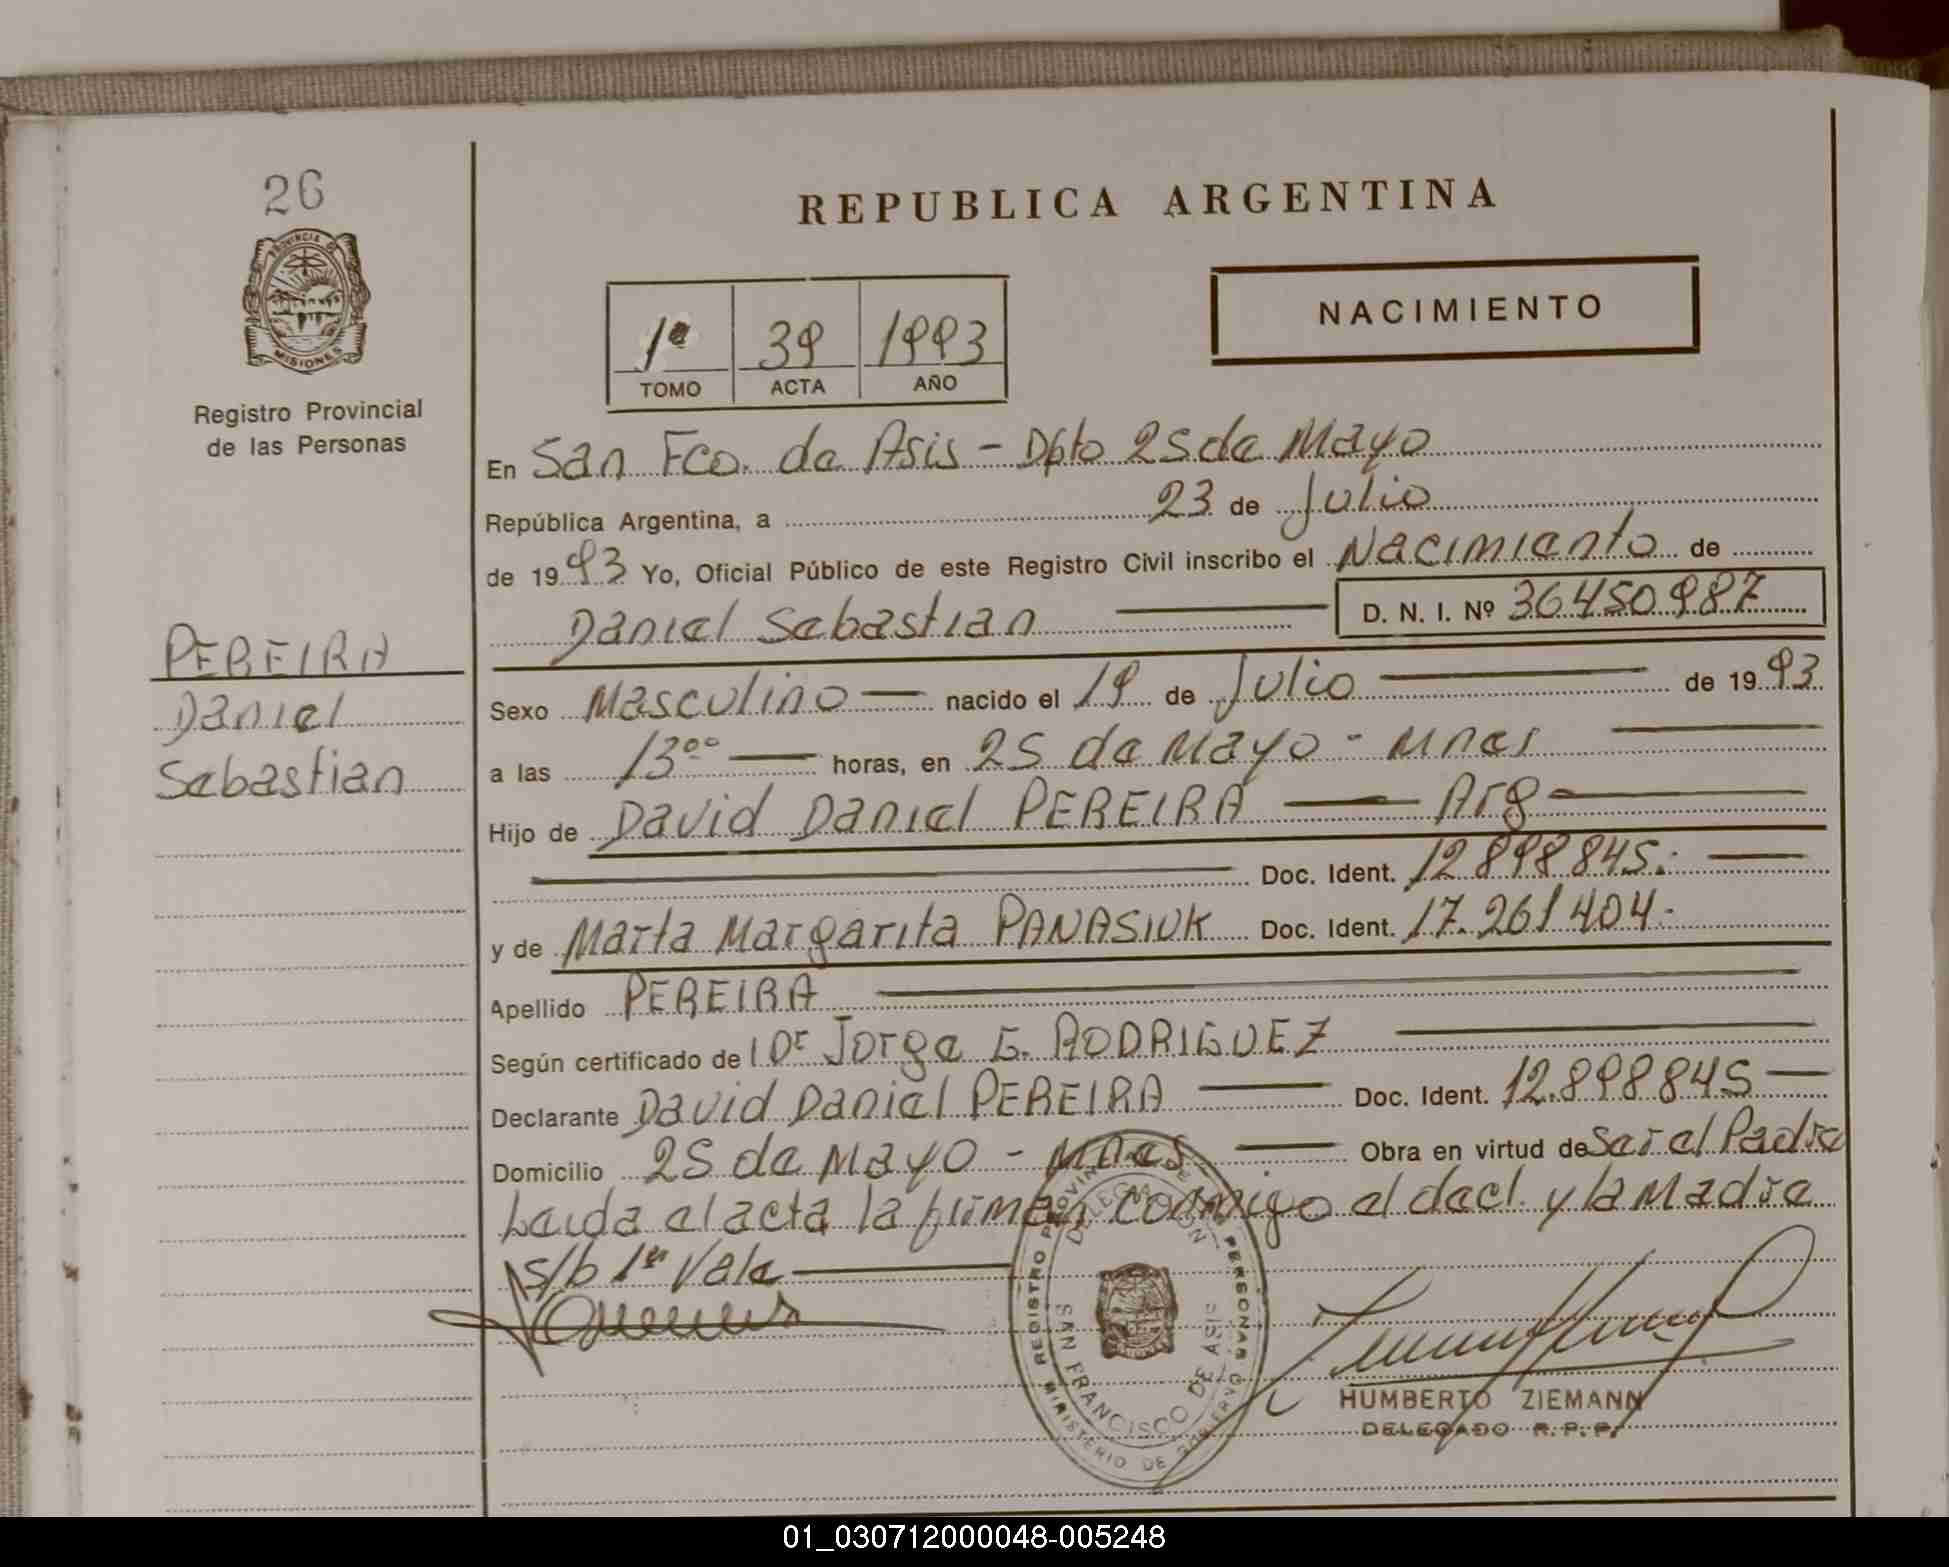 26
PROVINCIA DE
MISIONES
Registro Provincial
de las Personas
PEREIRA
Daniel
Sebastian
REPUBLICA ARGENTINA
NACIMIENTO
1º 39 1993
TOMO ACTA AÑO
En San Fco. de Asis - Dpto 25 de Mayo
República Argentina, a 23 de Julio
de 1993 Yo, Oficial Público de este Registro Civil inscribo el Nacimiento de
Daniel Sebastian D. N. I. Nº 36450987
Sexo Masculino nacido el 19 de Julio de 1993
a las 13⁰⁰ horas, en 25 de Mayo - Mnes
Hijo de David Daniel PEREIRA Arg
Doc. Ident. 12.898845.
y de Marta Margarita PANASIUK Doc. Ident. 17.261404.
Apellido PEREIRA
Según certificado de Dr Jorge G. RODRIGUEZ
Declarante David Daniel PEREIRA Doc. Ident. 12.898845
Domicilio 25 de Mayo - Mnes Obra en virtud de Ser el Padre
Leida el acta la firman conmigo el decl. y la Madre
s/b 1º Vale
REGISTRO PROVINCIAL DE PERSONAS
DELEGACION
SAN FRANCISCO DE ASIS
MINISTERIO DE GOBIERNO
HUMBERTO ZIEMANN
DELEGADO R.P.P.
01_030712000048-005248